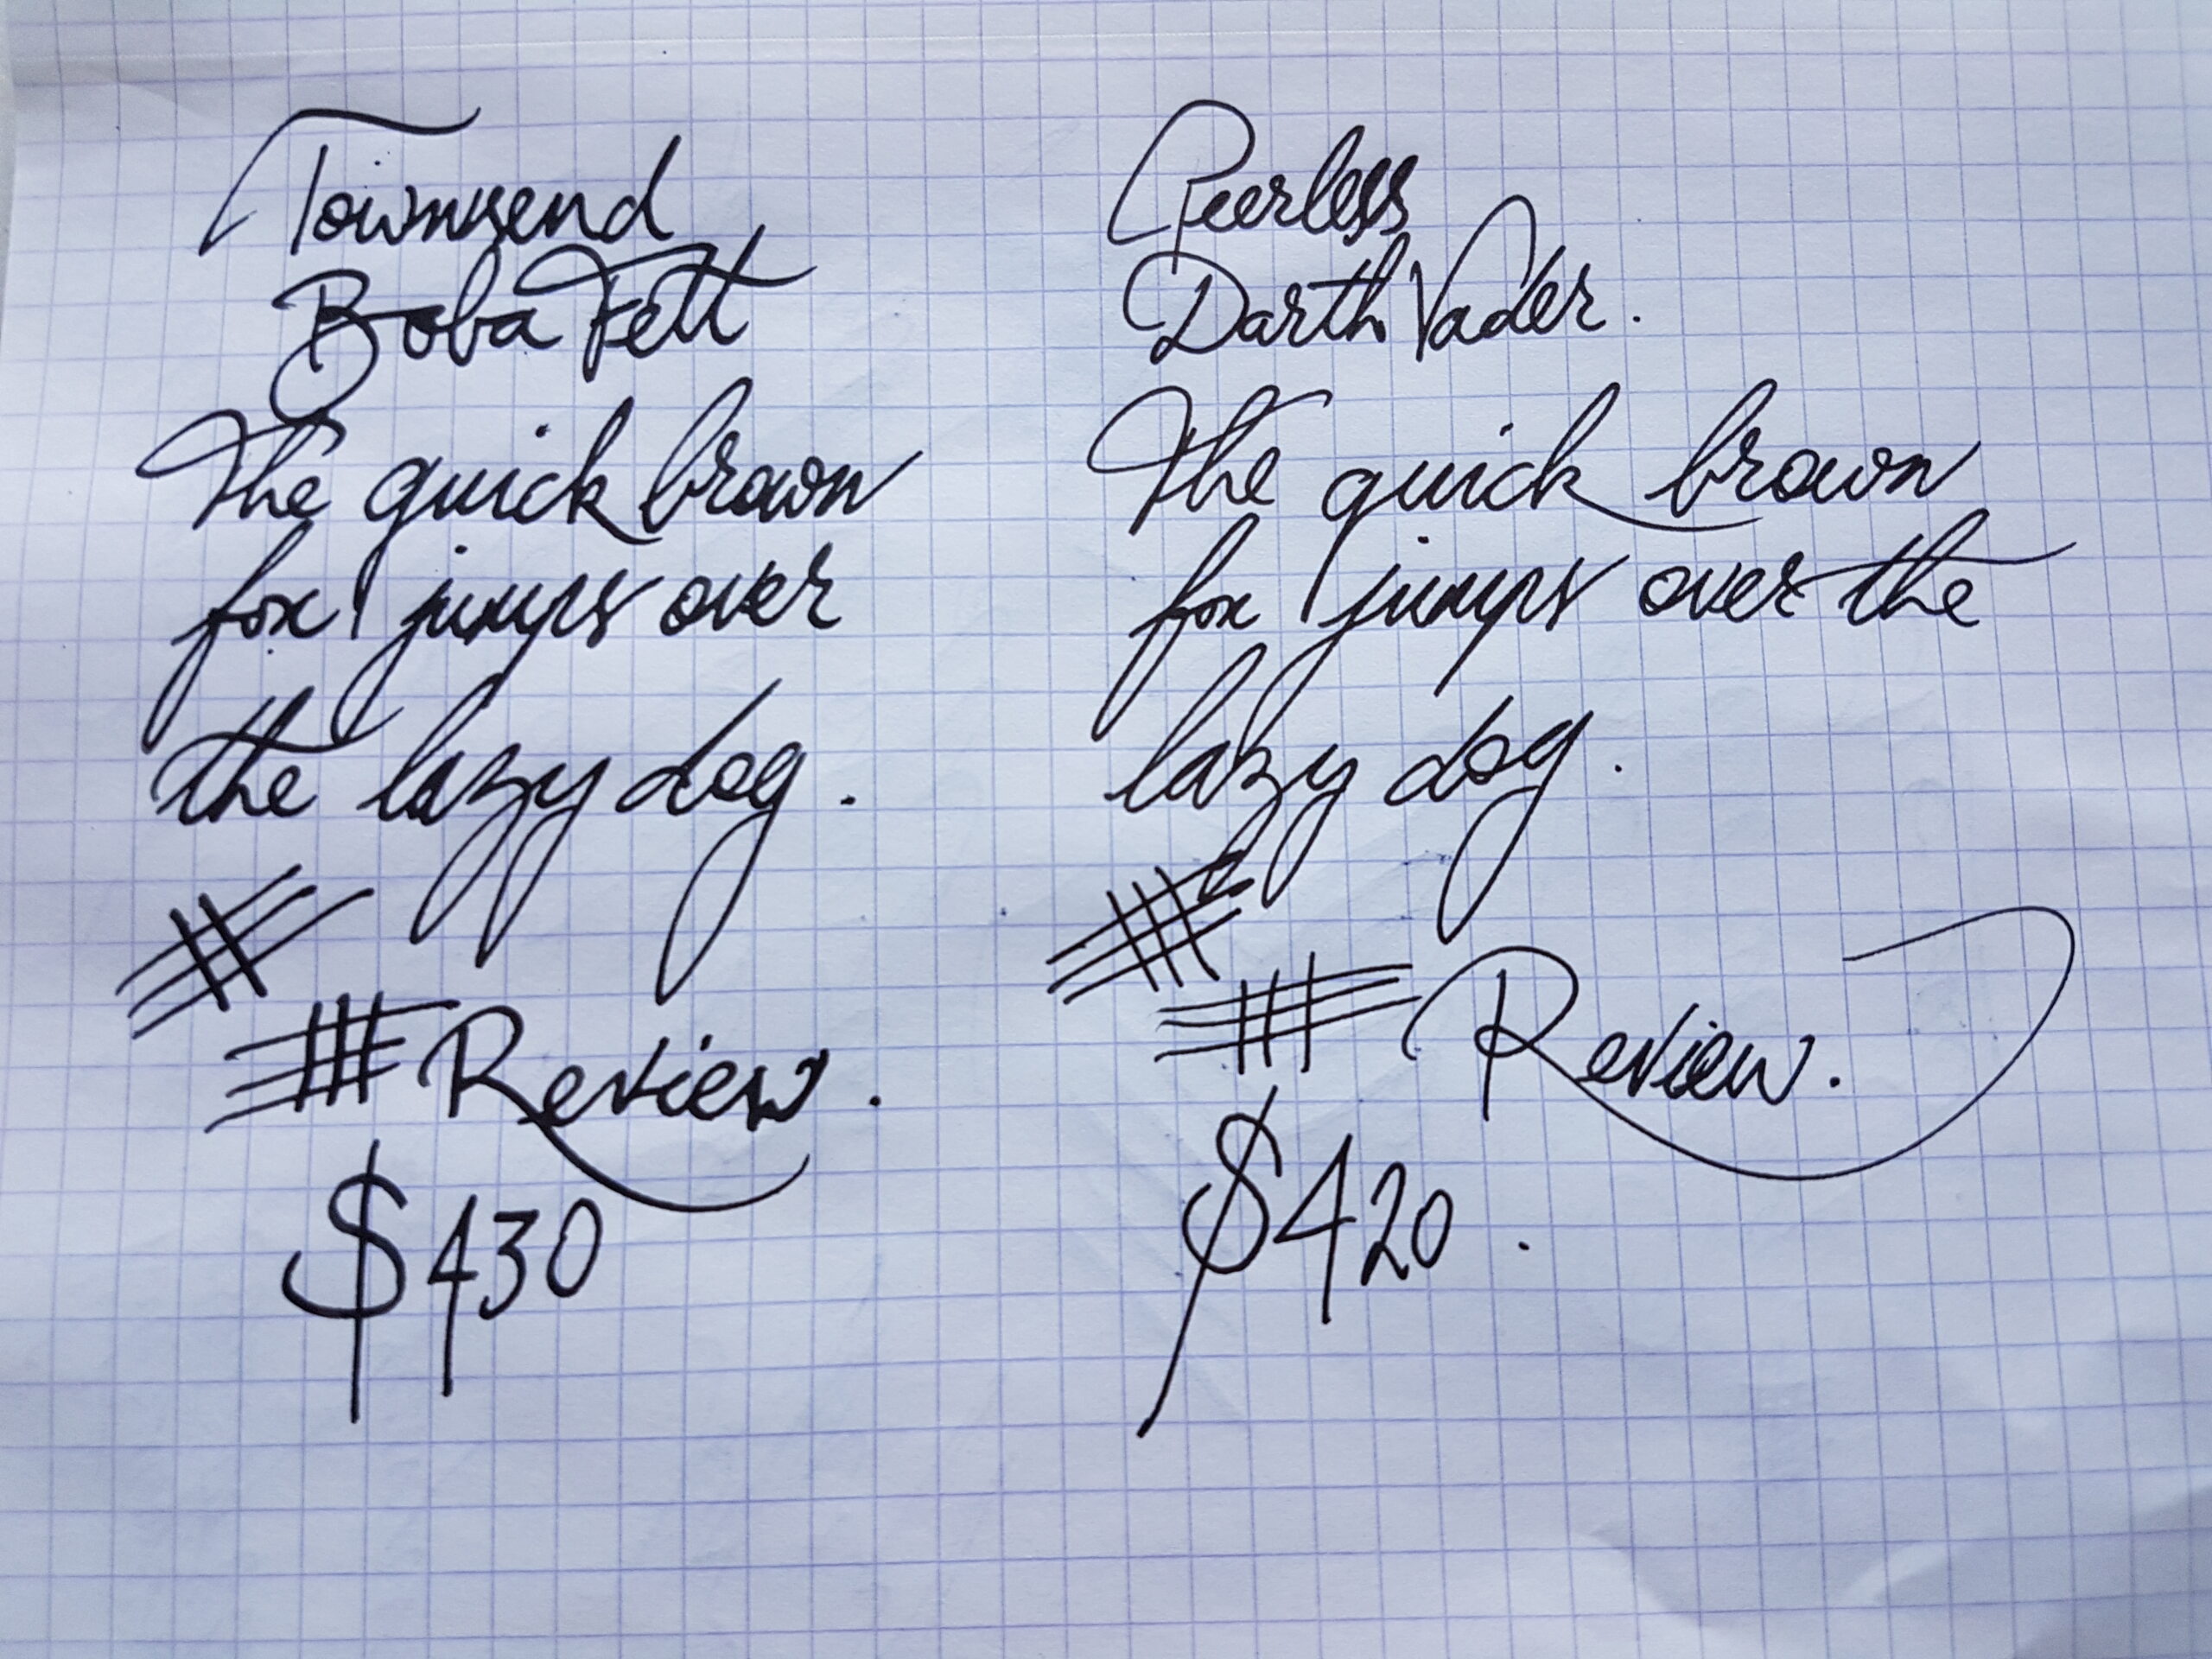 Townsend
Boba Fett
The quick brown
fox jumps over
the lazy dog.
Review.
$430
Peerless
Darth Vader.
The quick brown
fox jumps over the
lazy dog.
Review.
$420.